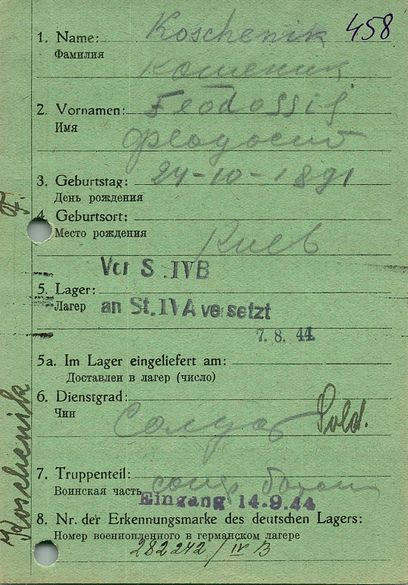 458
1. Name: Koschenik
Фамилия
Кошеник
2. Vornamen: Feodossij
Имя
Феодосий
3. Geburtstag: 24-10-1891
День рождения
4. Geburtsort:
Место рождения
Киев
Von S. IVB
5. Lager:
Лагер an St. IVA versetzt
7. 8. 44
5a. Im Lager eingeliefert am:
Доставлен в лагер (число)
6. Dienstgrad:
Чин
Солдат Sold.
7. Truppenteil:
Воинская часть
Eingang 14.9.44
8. Nr. der Erkennungsmarke des deutschen Lagers:
Номер военнопленного в германском лагере
282242/IV B
Koschenik